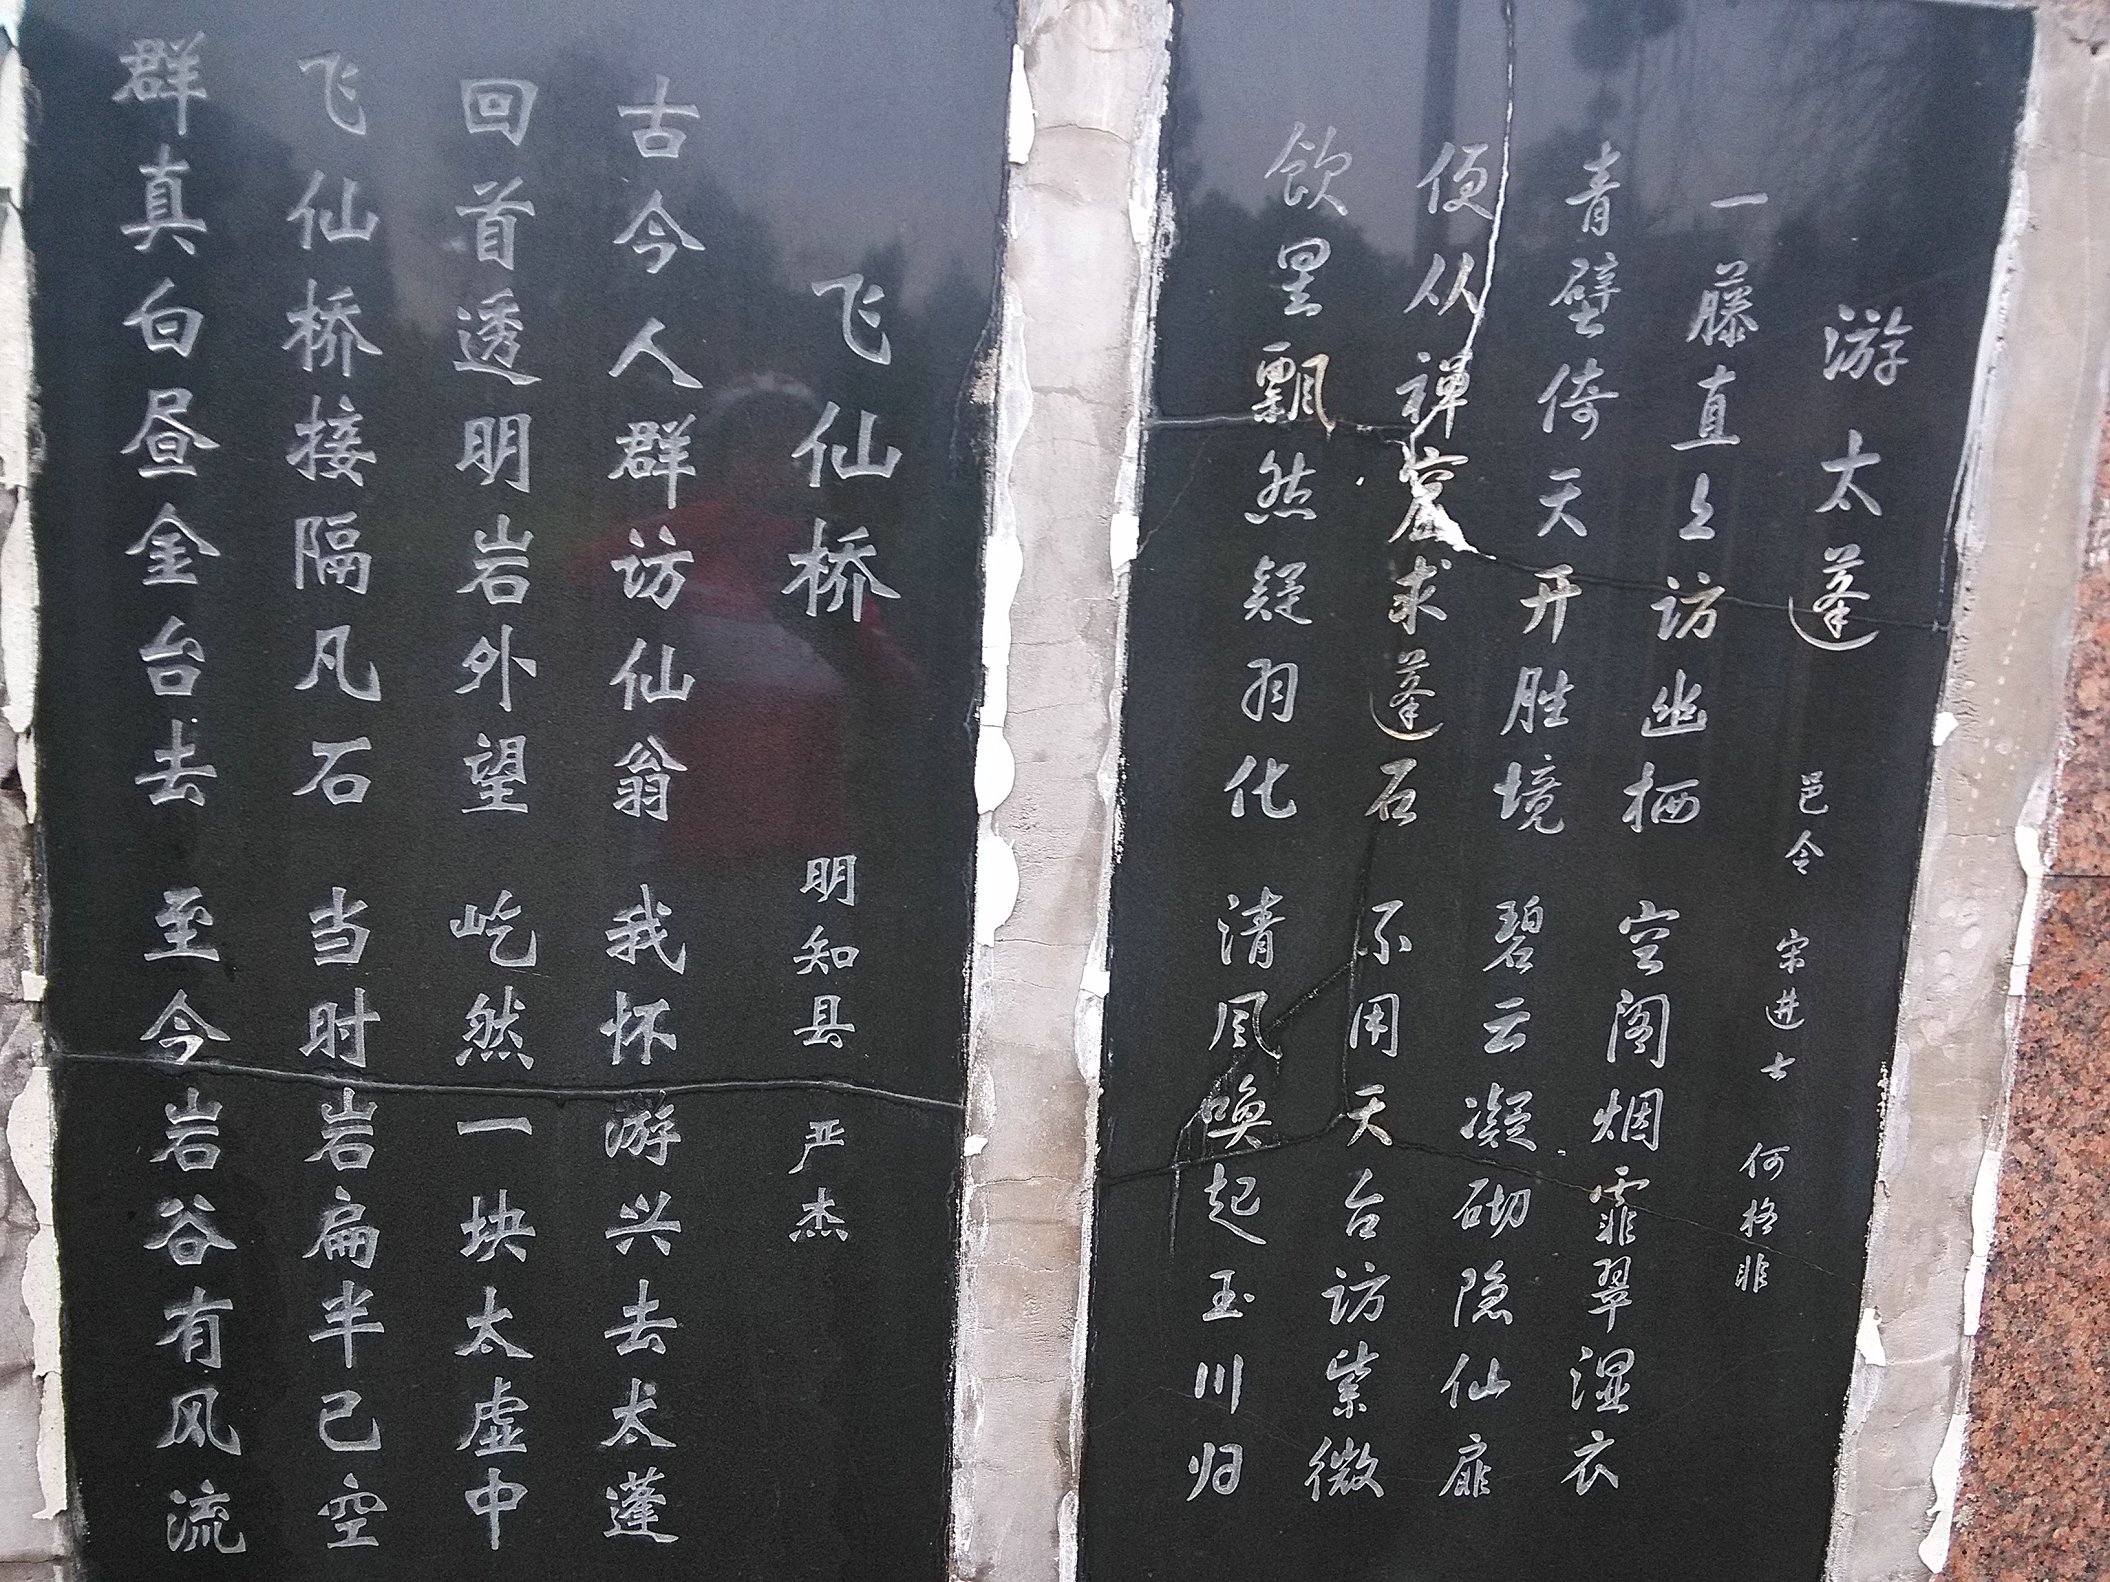 游太蓬 邑令 宋进士 何格非
一藤直上访幽栖 空阁烟霏翠湿衣
青壁倚天开胜境 碧云凝砌隐仙扉
便从禅窟求蓬石 不用天台访紫微
饮罢飘然疑羽化 清风唤起玉川归
飞仙桥 明知县 严杰
古今人群访仙翁 我怀游兴去太蓬
回首透明岩外望 屹然一块太虚中
飞仙桥接隔凡石 当时岩扁半已空
群真白昼金台去 至今岩谷有风流